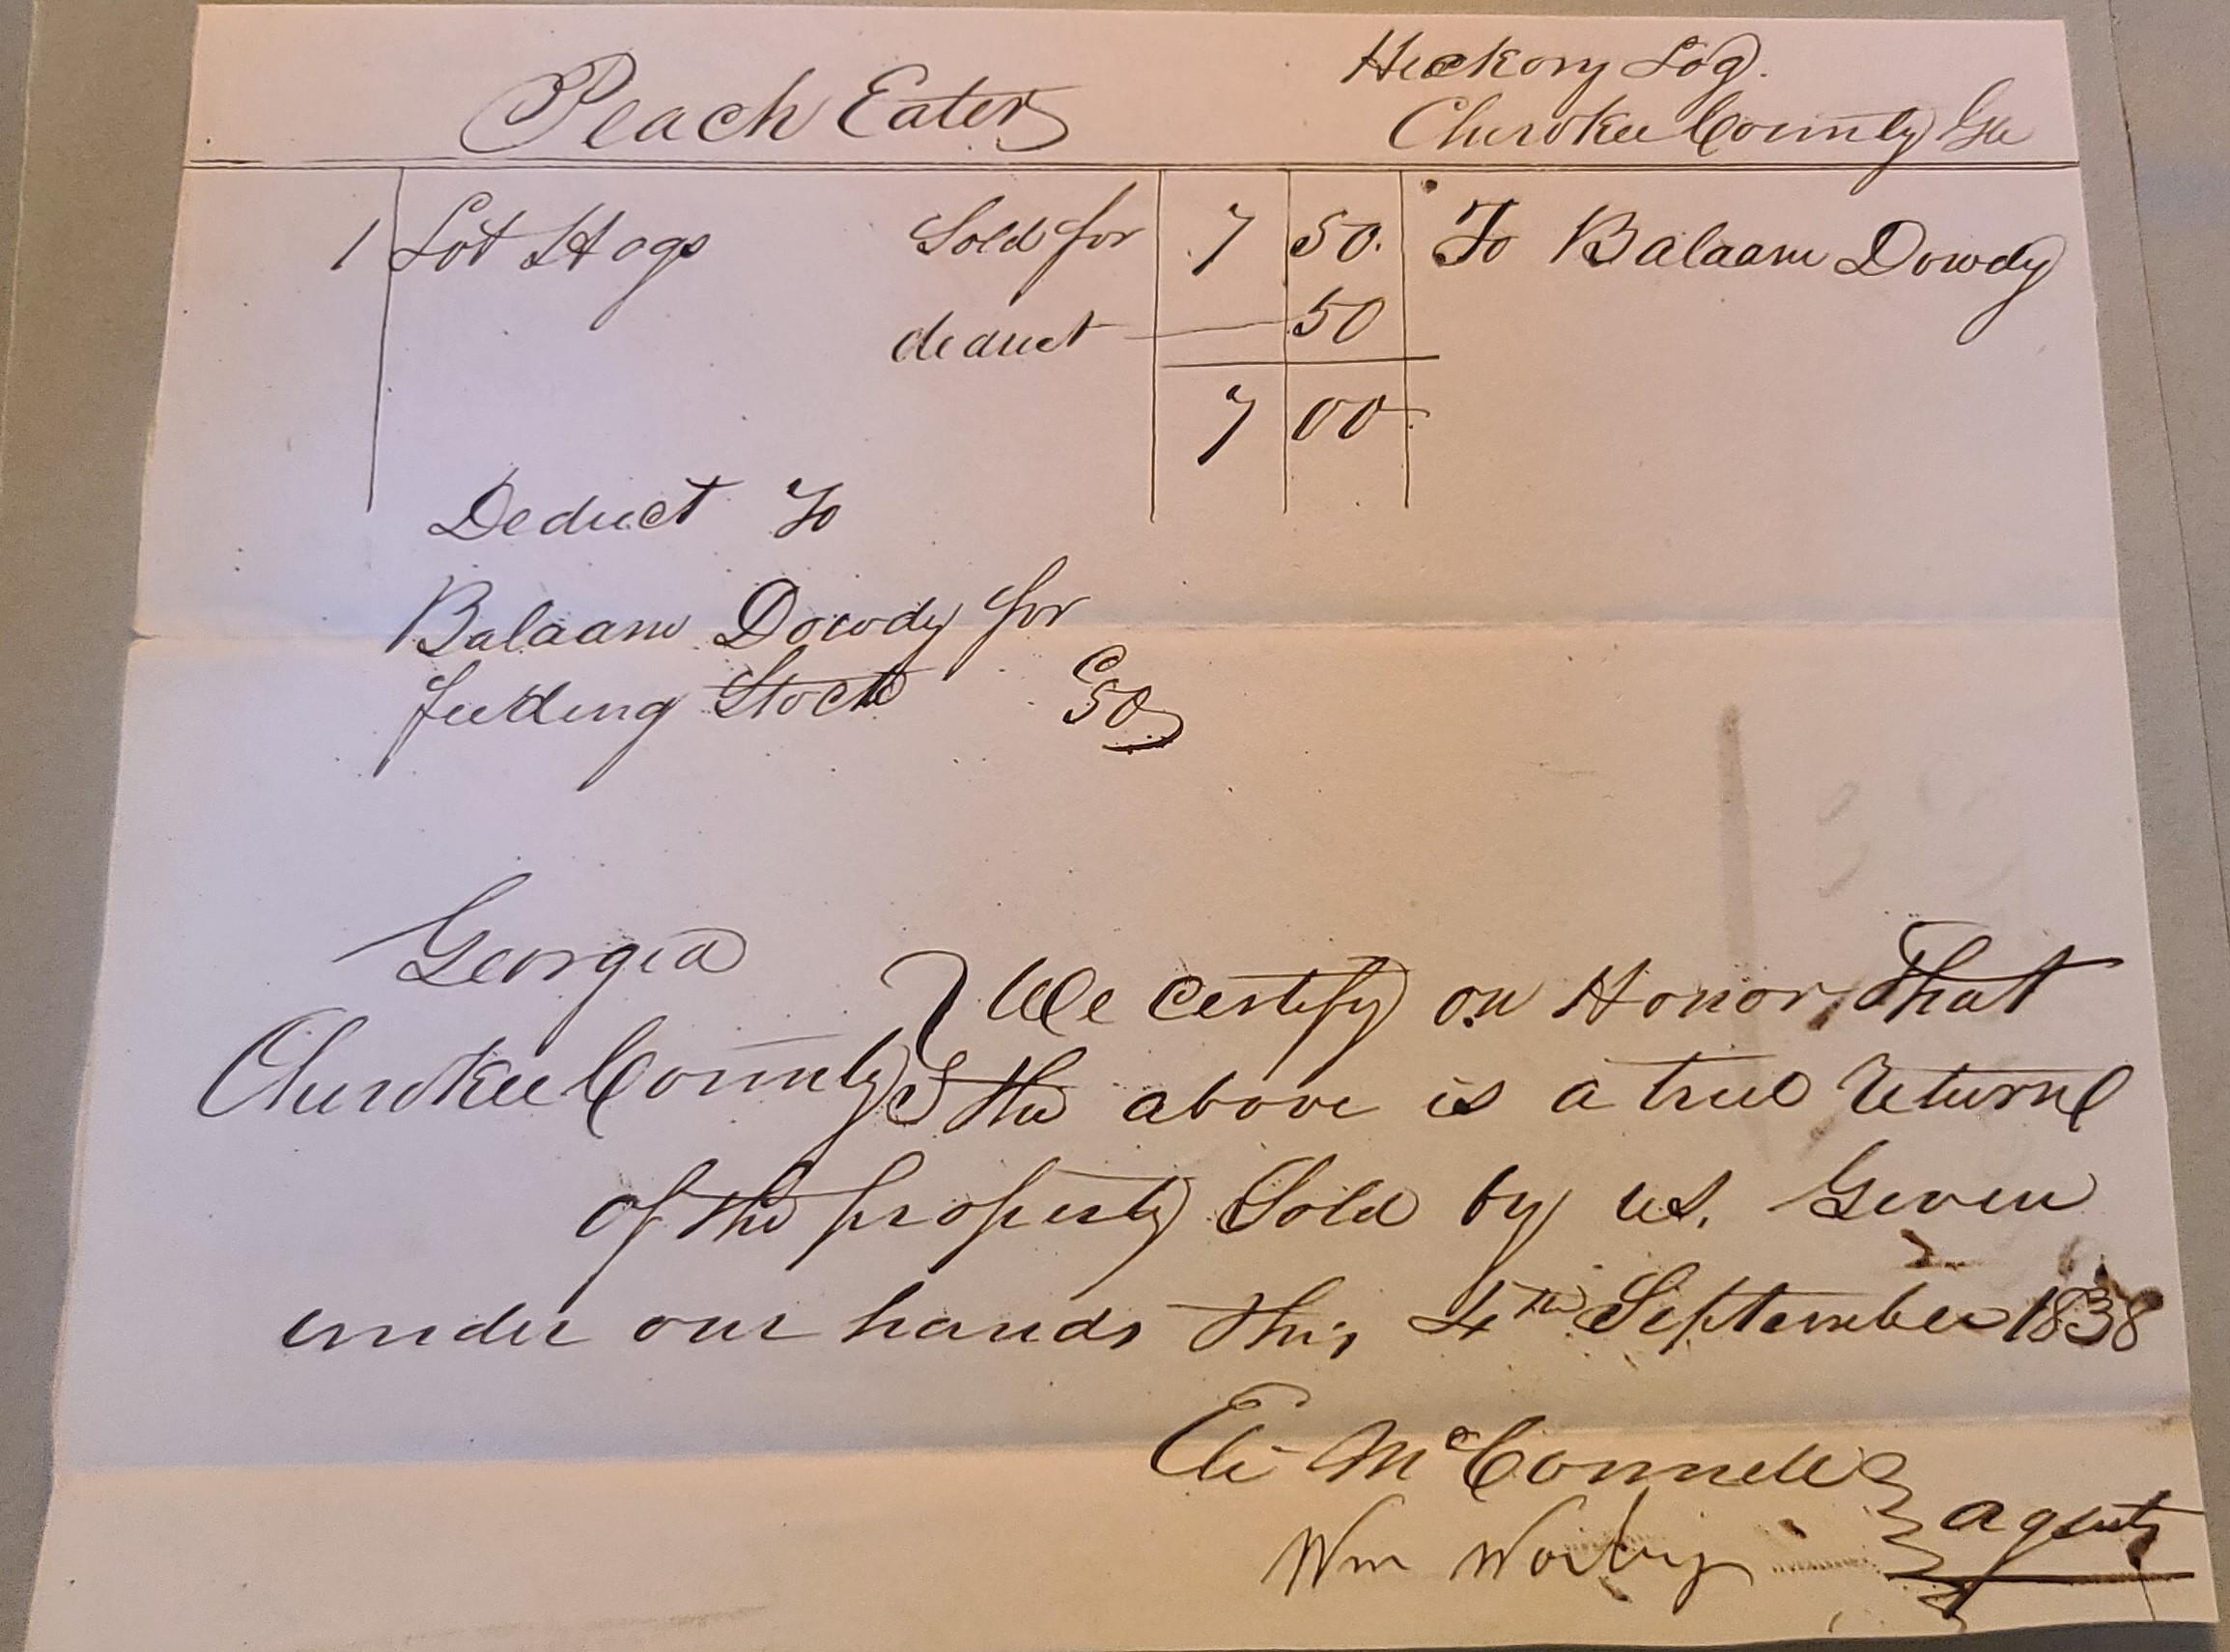 Peach Eater
Hickory Log.
Cherokee County Ga
1 Lot Hogs Sold for 7 50. To Balaam Dowdy
deduct 50
7 00
Deduct To
Balaam Dowdy for
feeding Stock 50
Georgia
Cherokee County } We certify on Honor, That
the above is a true return
of the property Sold by us. Given
under our hands this 4th September 1838
Eli McConnell
Wm
agents